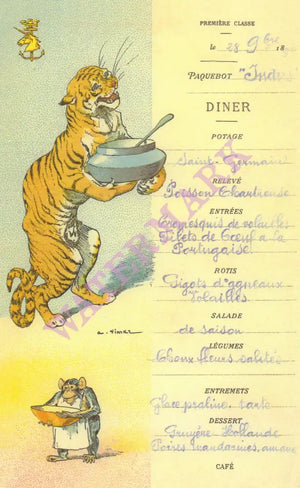 PREMIÈRE CLASSE
le 28 9bre 18
PAQUEBOT "Indus"
DINER
POTAGE
Saint-Germain
RELEVÉ
Poisson Chartreuse
ENTRÉES
Cromesquis de volailles
Filets de Bœuf à la
Portugaise
ROTIS
Gigots d'agneaux
Volailles
SALADE
de saison
LÉGUMES
Choux fleurs sautés
ENTREMETS
Glace praline, tarte
DESSERT
Gruyère Hollande
Poires mandarines,
CAFÉ
WATERMARK